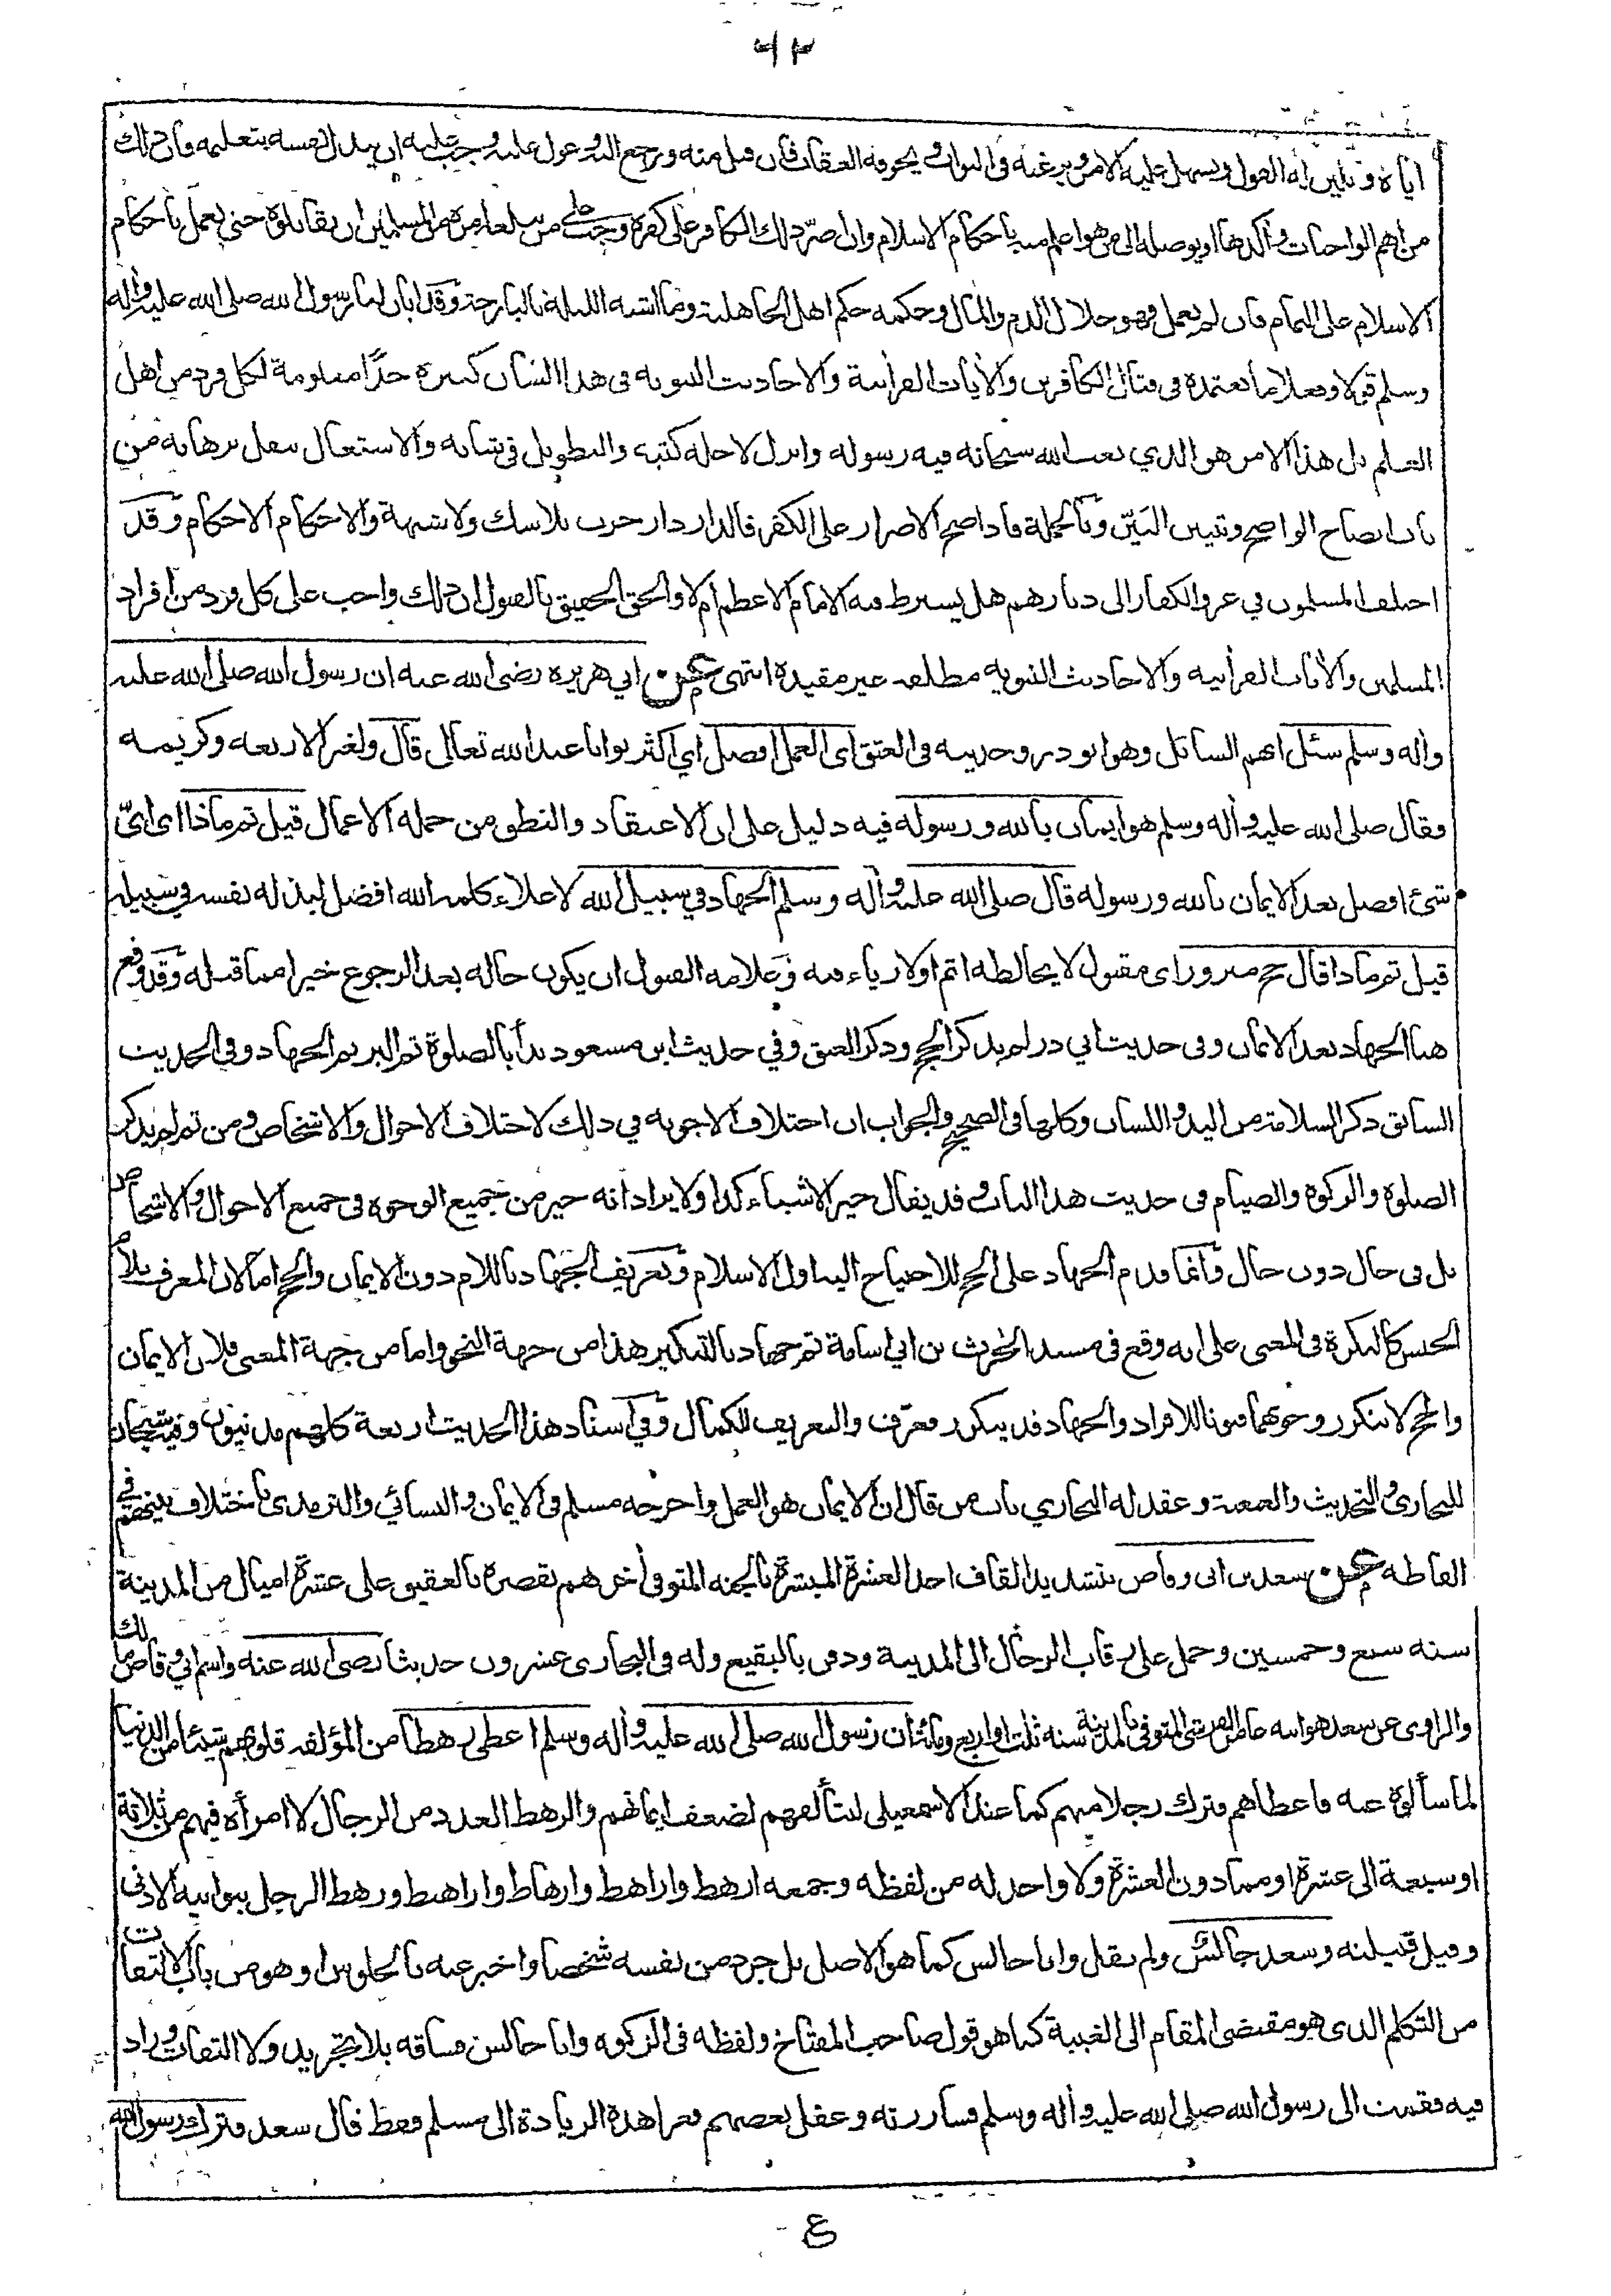 ٦٢
اياه وتليين له القول ويسهل عليه الامر ويرغبه في الثواب ويخوفه العقاب فان قبل منه ورجع اليه وعول عليه وجب عليه ان يبدل نفسه بتعليمه فان ذلك
من اهم الواجبات وآكدها او يوصله الى من هو اعلم منه باحكام الاسلام وان اصرّ ذلك الكافر على كفره وجب على من يبلغه امره من المسلمين ان يقاتلوه حتى يعمل باحكام
الاسلام على التمام فان لم يعمل فهو حلال الدم والمال وحكمه حكم اهل الجاهلية وما اشبه الليلة بالبارحة وقد ابان لنا رسول الله صلى الله عليه واله
وسلم قولا وفعلا ما نعتمده في قتال الكافرين والأيات القرأنية والاحاديث النبويه في هذا الشان كثيرة جدًا معلومة لكل فرد من اهل
العلم بل هذا الامر هو الذي بعث الله سبحانه فيه رسوله وانزل لاجله كتبه والتطويل في شانه والاستغال بنقل برهانه من
باب ايضاح الواضح وتبيين البَيّن وبالجملة فاذا صح الاصرار على الكفر فالدار دار حرب بلا شك ولا شبهة والاحكام الاحكام وقد
اختلف المسلمون في غزو الكفار الى ديارهم هل يشترط فيه الامام الاعظم ام لا والحق الحقيق بالقبول ان ذلك واجب على كل فرد من افراد
المسلمين والأيات القرأنيه والاحاديث النبويه مطلقه غير مقيدة انتهى عن ابي هريره رضي الله عنه ان رسول الله صلى الله عليه
واله وسلم سئل ابهم السائل وهو ابو ذر وحديثه في العتق اى العمل افضل اي اكثر ثوابا عند الله تعالى قال ولغير الاربعه وكريمه
فقال صلى الله عليه وأله وسلم هو ايمان بالله ورسوله فيه دليل على ان الاعتقاد والنطق من جمله الاعمال قيل ثم ماذا اى ايّ
شئ افضل بعد الايمان بالله ورسوله قال صلى الله عليه وأله وسلم الجهاد في سبيل الله لاعلاء كلمه الله افضل لبذله نفسه في سبيله
قيل ثم ماذا قال حج مبرور اى مقبول لا يخالطه اثم او لا رياء فيه وعلامه القبول ان يكون حاله بعد الرجوع خيرا مما قبله وقد وقع
هنا الجهاد بعد الايمان وفى حديث ابي ذر لم يذكر الحج وذكر العتق وفي حديث ابن مسعود بدأ بالصلوة ثم البر ثم الجهاد وفي الحديث
السابق ذكر السلامة من اليد واللسان وكلها في الصحيح والجواب ان اختلاف الاجوبه في ذلك لاختلاف الاحوال والاشخاص ومن ثم لم يذكر
الصلوة والزكوة والصيام فى حديث هذا الباب وقد يقال خير الاشياء كذا ولا يراد انه خير من جميع الوجوه فى جميع الاحوال والاشخاص
بل فى حال دون حال وانما قدم الجهاد على الحج للاحتياج اليه اول الاسلام وتعريف الجهاد باللام دون الايمان والحج اما لان المعرف بلام
الجنس كالنكرة في المعنى على انه وقع في مسند الحرث بن ابي اسامة ثم جهاد بالتنكير هذا من جهة النحو واما من جهة المعنى فلان الايمان
والحج لا يتكرر وجوبهما فنونا للافراد والجهاد قد يتكرر فعرّف والتعريف للكمال وفي اسناد هذا الحديث اربعة كلهم مدنيون وفيه شيخان
للبخارى والتحديث والعنعنة وعقد له البخاري باب من قال ان الايمان هو العمل واخرجه مسلم في الايمان والنسائي والترمذى باختلاف بينهم في
الفاظه عن سعد بن ابى وقاص بتشديد القاف احد العشرة المبشرة بالجنه المتوفى أخرهم بقصره بالعقيق على عشرة اميال من المدينة
سنه سبع وخمسين وحمل على رقاب الرجال الى المدينة ودفن بالبقيع وله في البخارى عشرون حديثا رضى الله عنه واسم ابي وقاص مالك
والراوى عن سعد هو ابنه عامر القرشى المتوفى بالمدينة سنه ثلث او اربع ومائة ان رسول الله صلى الله عليه وأله وسلم اعطى رهطا من المؤلفه قلوبهم شيئا من الدنيا
لما سألوه عنه فاعطاهم فترك رجلا منهم كما عند الاسمعيلى ليتألفهم لضعف ايمانهم والرهط العدد من الرجال لا امرأه فيهم من ثلاثة
او سبعة الى عشرة او مما دون العشرة ولا واحد له من لفظه وجمعه ارهط واراهط وارهاط واراهيط ورهط الرجل بنو ابيه الادنى
وقيل قبيلته وسعد جالسٌ ولم يقل وانا جالس كما هو الاصل بل جرد من نفسه شخصا واخبر عنه بالجلوس او هو من باب الالتفات
من التكلم الذى هو مقتضى المقام الى الغيبة كما هو قول صاحب المفتاح ولفظه فى الزكوه وانا جالس فساقه بلا تجريد ولا التفات وزاد
فيه فقمت الى رسول الله صلى الله عليه وأله وسلم فساررته وغفل بعضهم فعزا هذه الزيادة الى مسلم فقط قال سعد فترك رسول الله
ع